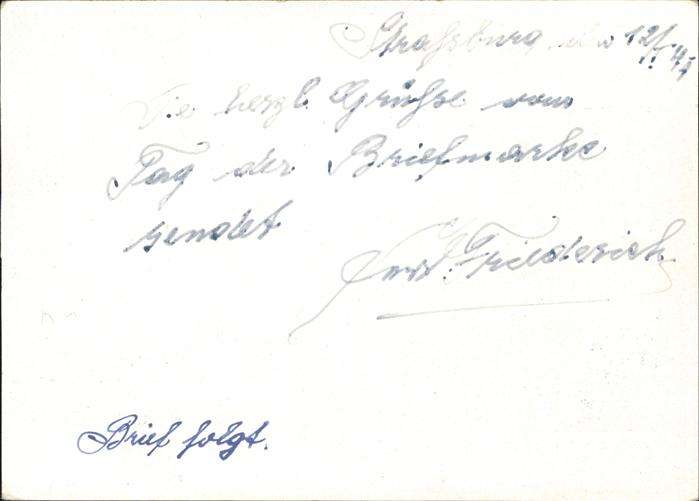 Straßburg, den 12/I 41
Die herzl. Grüße vom
Tag der Briefmarke
sendet
Friederich
Brief folgt.